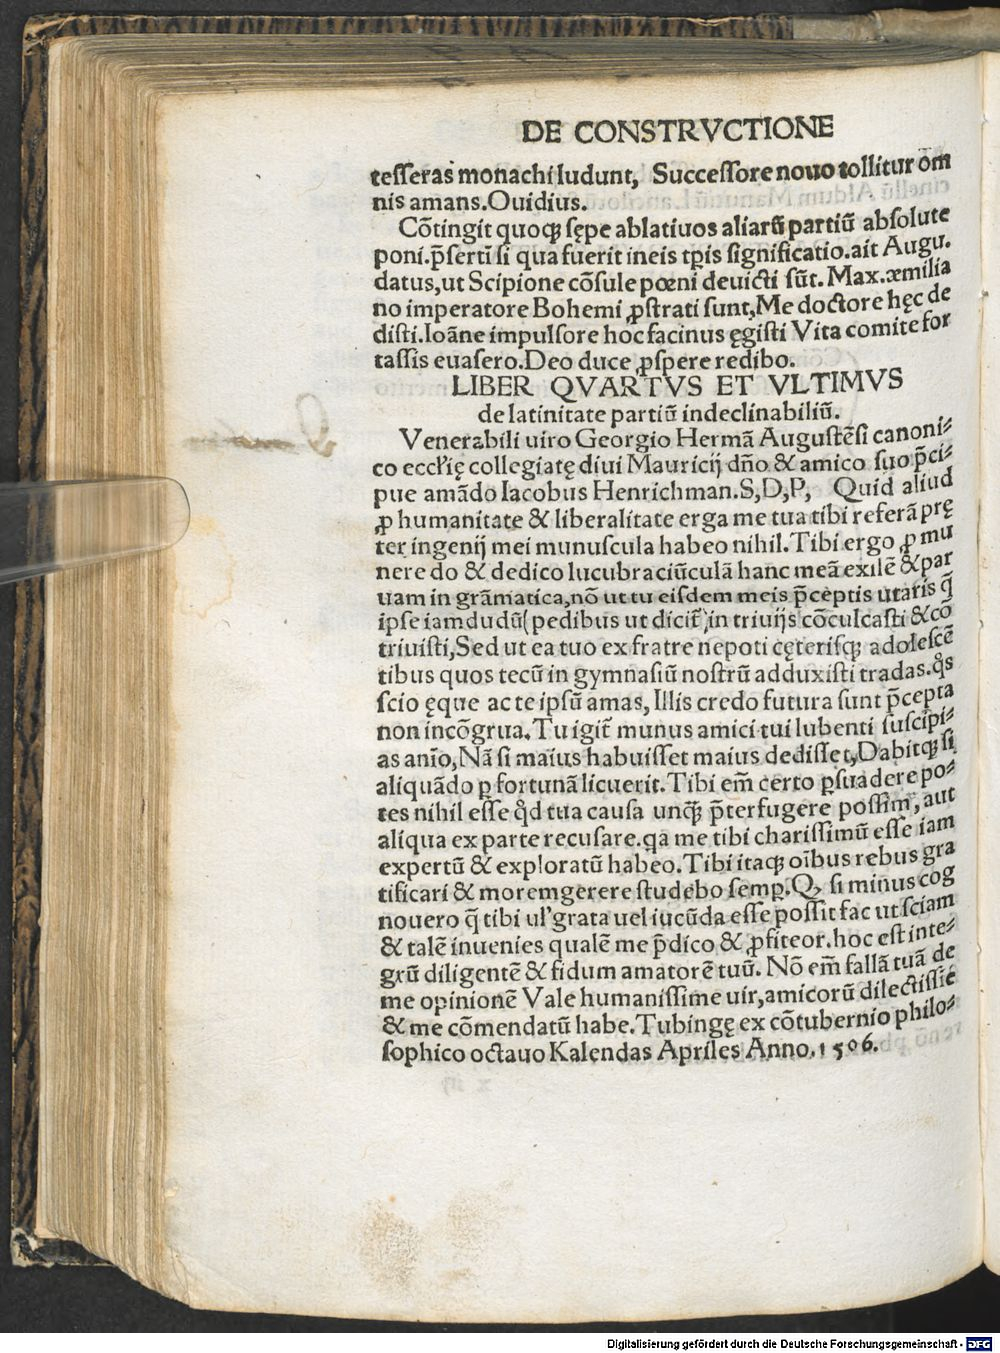 DE CONSTRVCTIONE
tesseras monachi ludunt, Successore nouo tollitur om̄
nis amans. Ouidius.
Cōtingit quoqꝫ sępe ablatiuos aliarū partiū absolute
poni. p̄serti ̄si qua fuerit in eis tp̄is significatio. ait Augu.
datus, ut Scipione cōsule pœni deuicti sūt. Max. æmilia
no imperatore Bohemi ꝓstrati sunt, Me doctore hęc de
disti. Ioāne impulsore hoc facinus ęgisti Vita comite for
tassis euasero. Deo duce ꝓspere redibo.
LIBER QVARTVS ET VLTIMVS
de latinitate partiū indeclinabiliū.
Venerabili uiro Georgio Hermā Augustēsi canoni⸗
co eccl'ię collegiatę diui Mauricij dn̄o & amico suo p̄ci⸗
pue amādo Iacobus Henrichman. S, D, P, Quid aliud
ꝓ humanitate & liberalitate erga me tua tibi referā prę
ter ingenij mei munuscula habeo nihil. Tibi ergo ꝓ mu
nere do & dedico lucubraciūculā hanc meā exilē & par
uam in grāmatica, nō ut tu eisdem meis p̄ceptis utaris q̄
ipse iamdudū (pedibus ut dicit̄) in triuijs cōculcasti & cō
triuisti, Sed ut ea tuo ex fratre nepoti cęterisqꝫ adolescē
tibus quos tecū in gymnasiū nostrū adduxisti tradas. qͦs
scio ęque ac te ipsū amas, Illis credo futura sunt p̄cepta
non incōgrua. Tu igit̄ munus amici tui lubenti suscipi⸗
as anīo, Nā si maius habuisset maius dedisset, Dabitqꝫ si
aliquādo ꝑ fortunā licuerit. Tibi em̄ certo ꝑsuadere po⸗
tes nihil esse qͦd tua causa unqꝫ̄ p̄terfugere possim, aut
aliqua ex parte recusare. qa me tibi charissimū esse iam
expertū & exploratū habeo. Tibi itaqꝫ oībus rebus gra
tificari & moremgerere studebo semꝑ. Qꝫ si minus cog
nouero q̄ tibi ul' grata uel iucūda esse possit fac ut sciam
& talē inuenies qualē me p̄dico & ꝓfiteor. hoc est inte⸗
grū diligentē & fidum amatorē tuū. Nō em̄ fallā tuā de
me opinionē Vale humanissime uir, amicorū dilectissīe
& me cōmendatū habe. Tubingę ex cōtubernio philo⸗
sophico octauo Kalendas Apriles Anno. 1506.
Digitalisierung gefördert durch die Deutsche Forschungsgemeinschaft - DFG